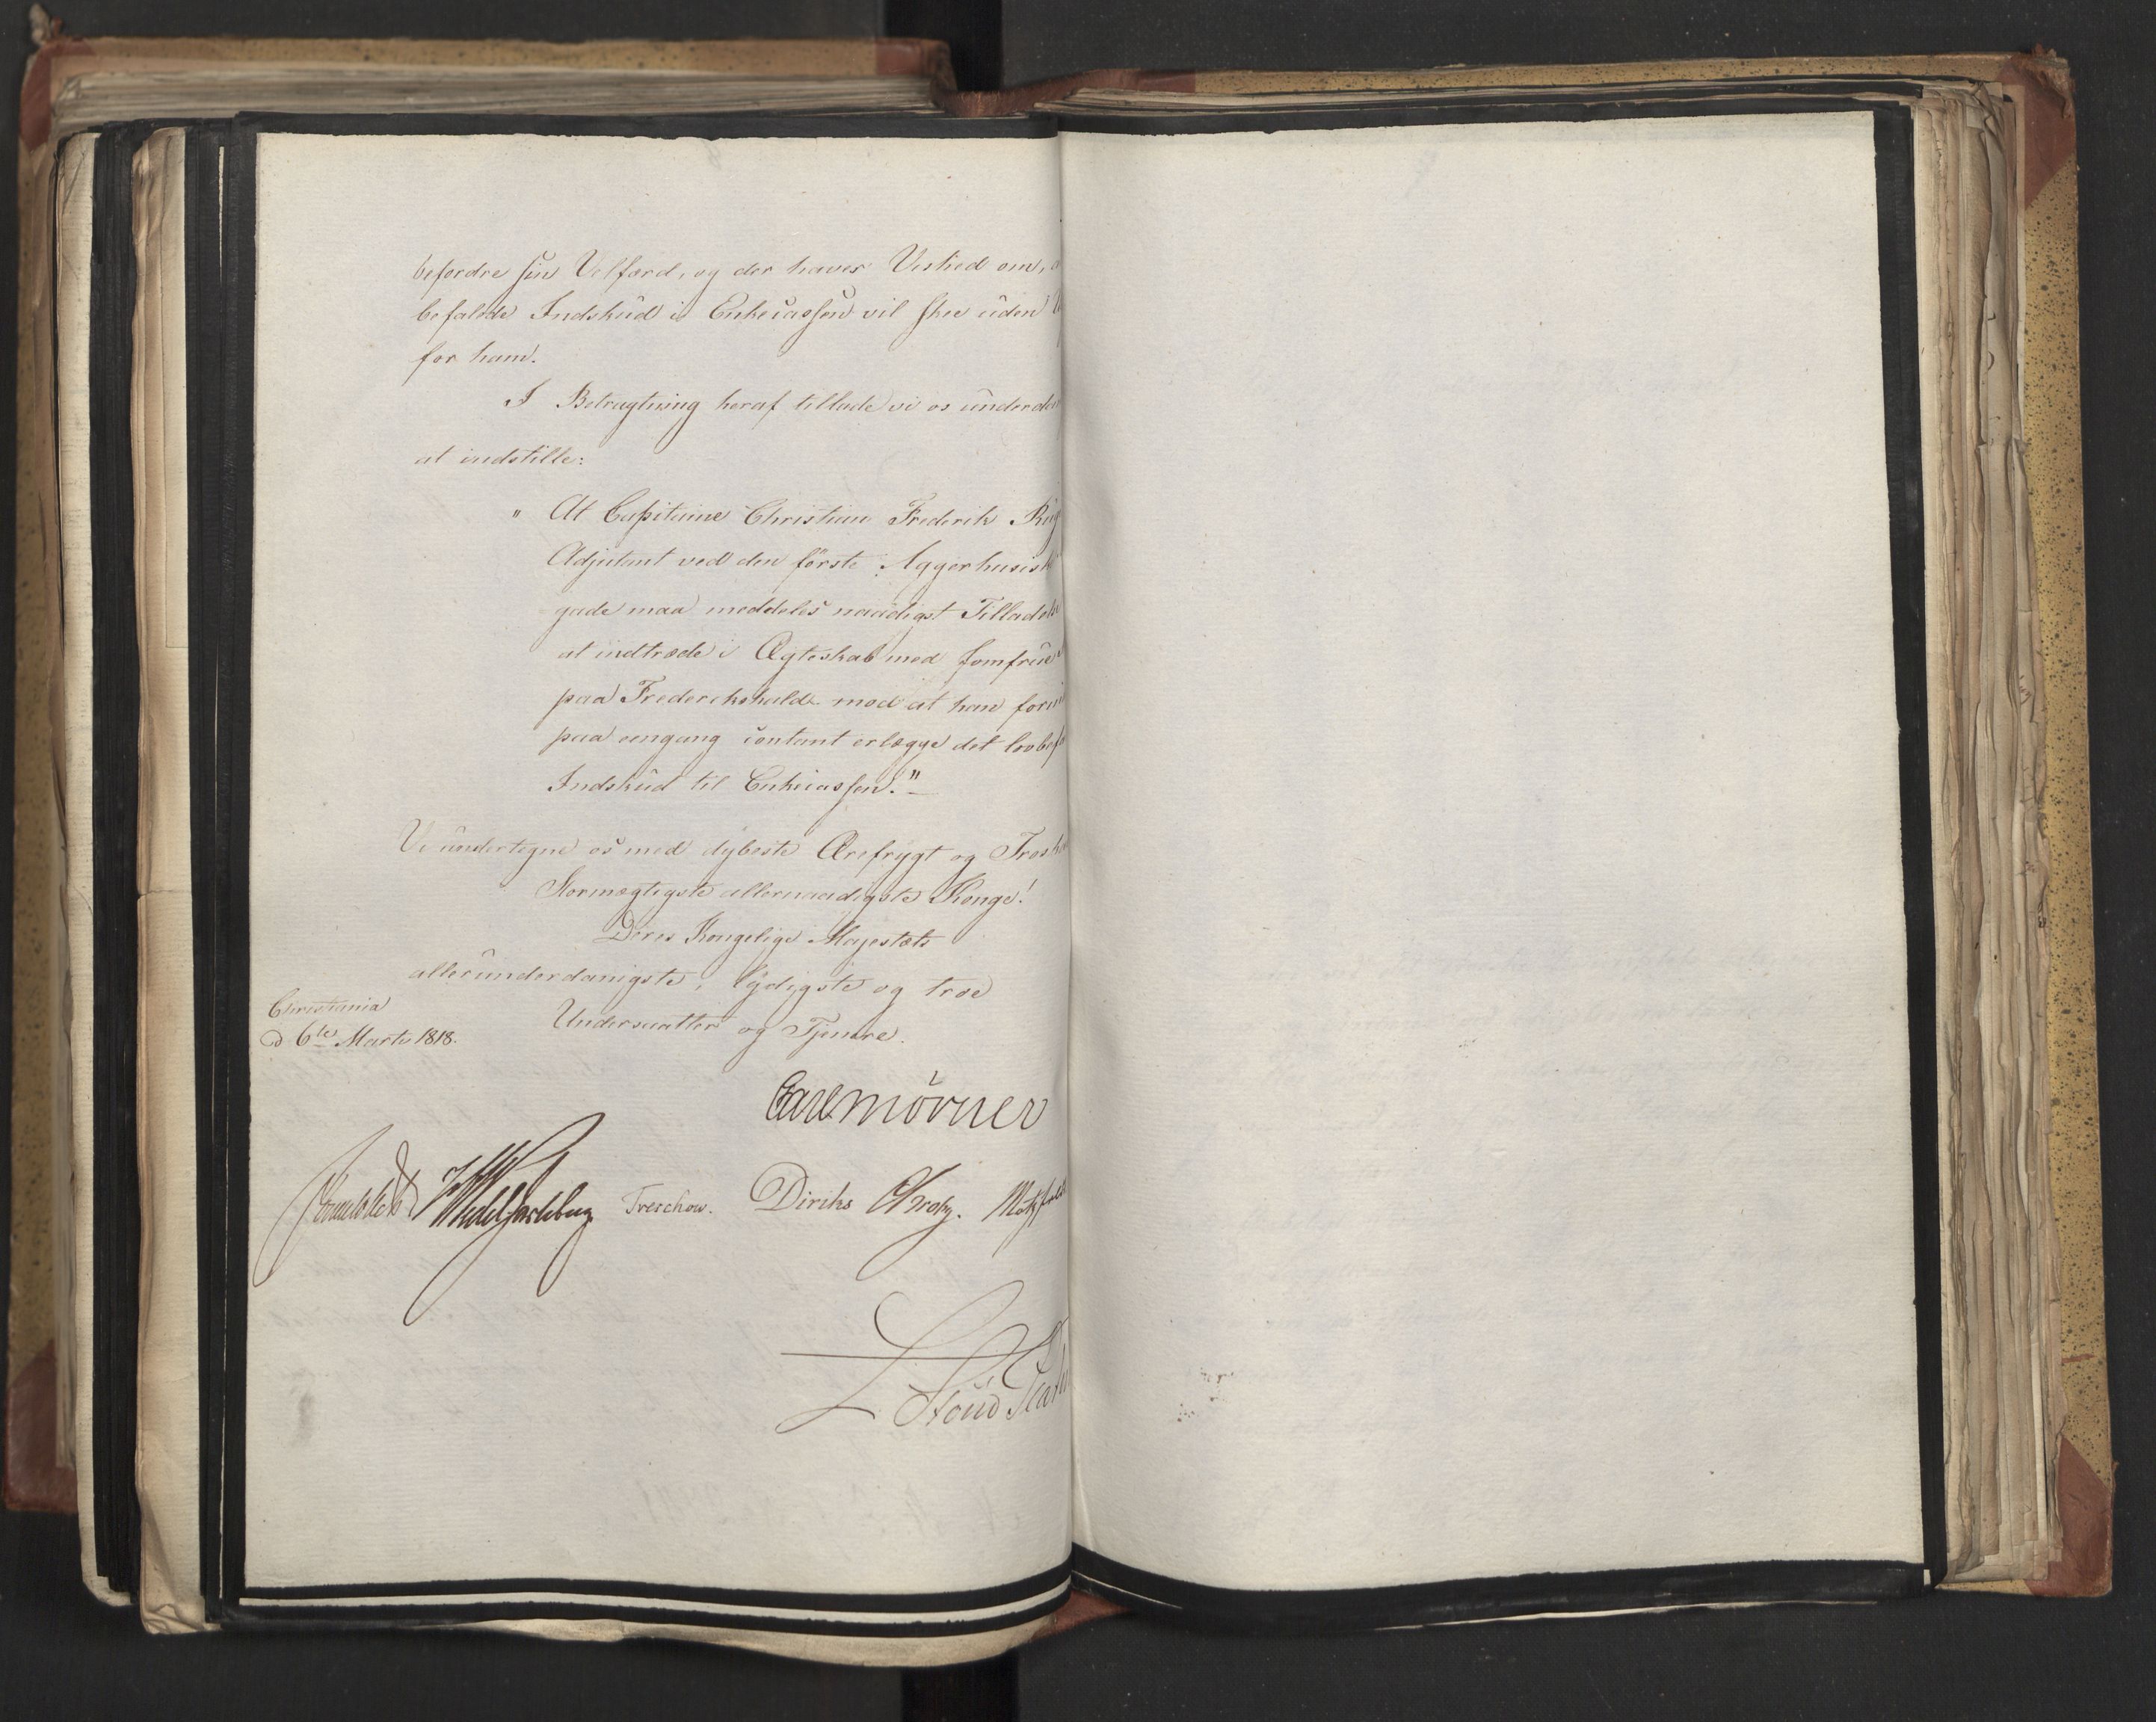 befordre sin Velfærd, og der haves Vished om,
befalede Indskud i Enkecassen vil skee uden
for ham.
I Betragtning heraf tillade vi os underda
at indstille:
" At Capitaine Christian Frederik
Adjutant ved den förste Aggerhusisk
gade maa meddeles naadigst Tilladelse
at indtræde i Ægteskab med Jomfrue
paa Frederikshald mod at han forin
paa eengang contant erlægge det lovbefa
Indskud til Enkecassen."
Vi undertegne os med dybeste Ærefrygt og Troska
Stormægtigste allernaadigste Konge!
Deres Kongelige Majestæts
allerunderdanigste, lydigste og troe
Christania
d 6te Marts 1818.
Undersaatter og Tjenere.
Carl Mörner
Sommerhielm Wedel Jarlsberg Treschow. Diriks Krohg. Motzfeldt